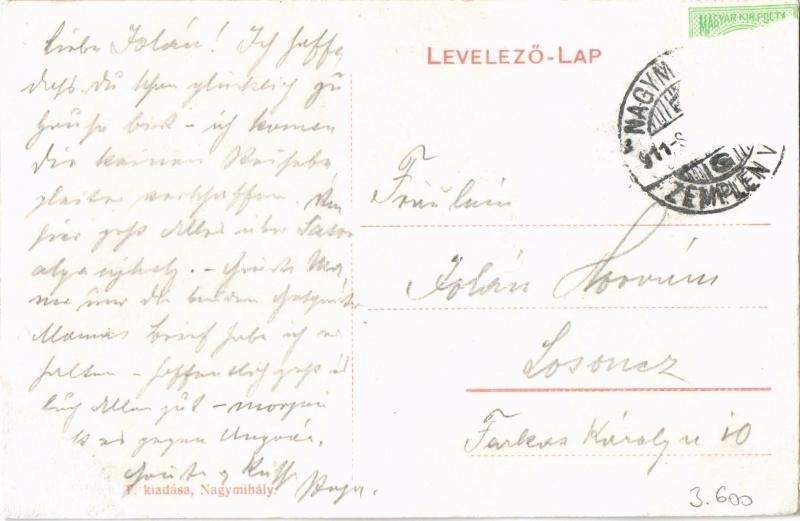 Liebe Jolán! Ich hoffe,
dass du schon glücklich zu
Hause bist – ich konnte
dir keinen Reisebe
gleiter verschaffen. Von
hier geht Alles über Sator
alyaujhely. – Grüsse
und die beiden
Mamas Brief habe ich er
halten – hoffentlich geht es
Euch Allen gut – morgen
gegen Ungvár.
Grüsse & Küsse
Papa.
T. kiadása, Nagymihály.
LEVELEZŐ-LAP
MAGYAR·KIR·POSTA
NAGYM
911
ZEMPLÉN V
Fräulein
Jolán
Losoncz
Farkas Károly u 10
3.600